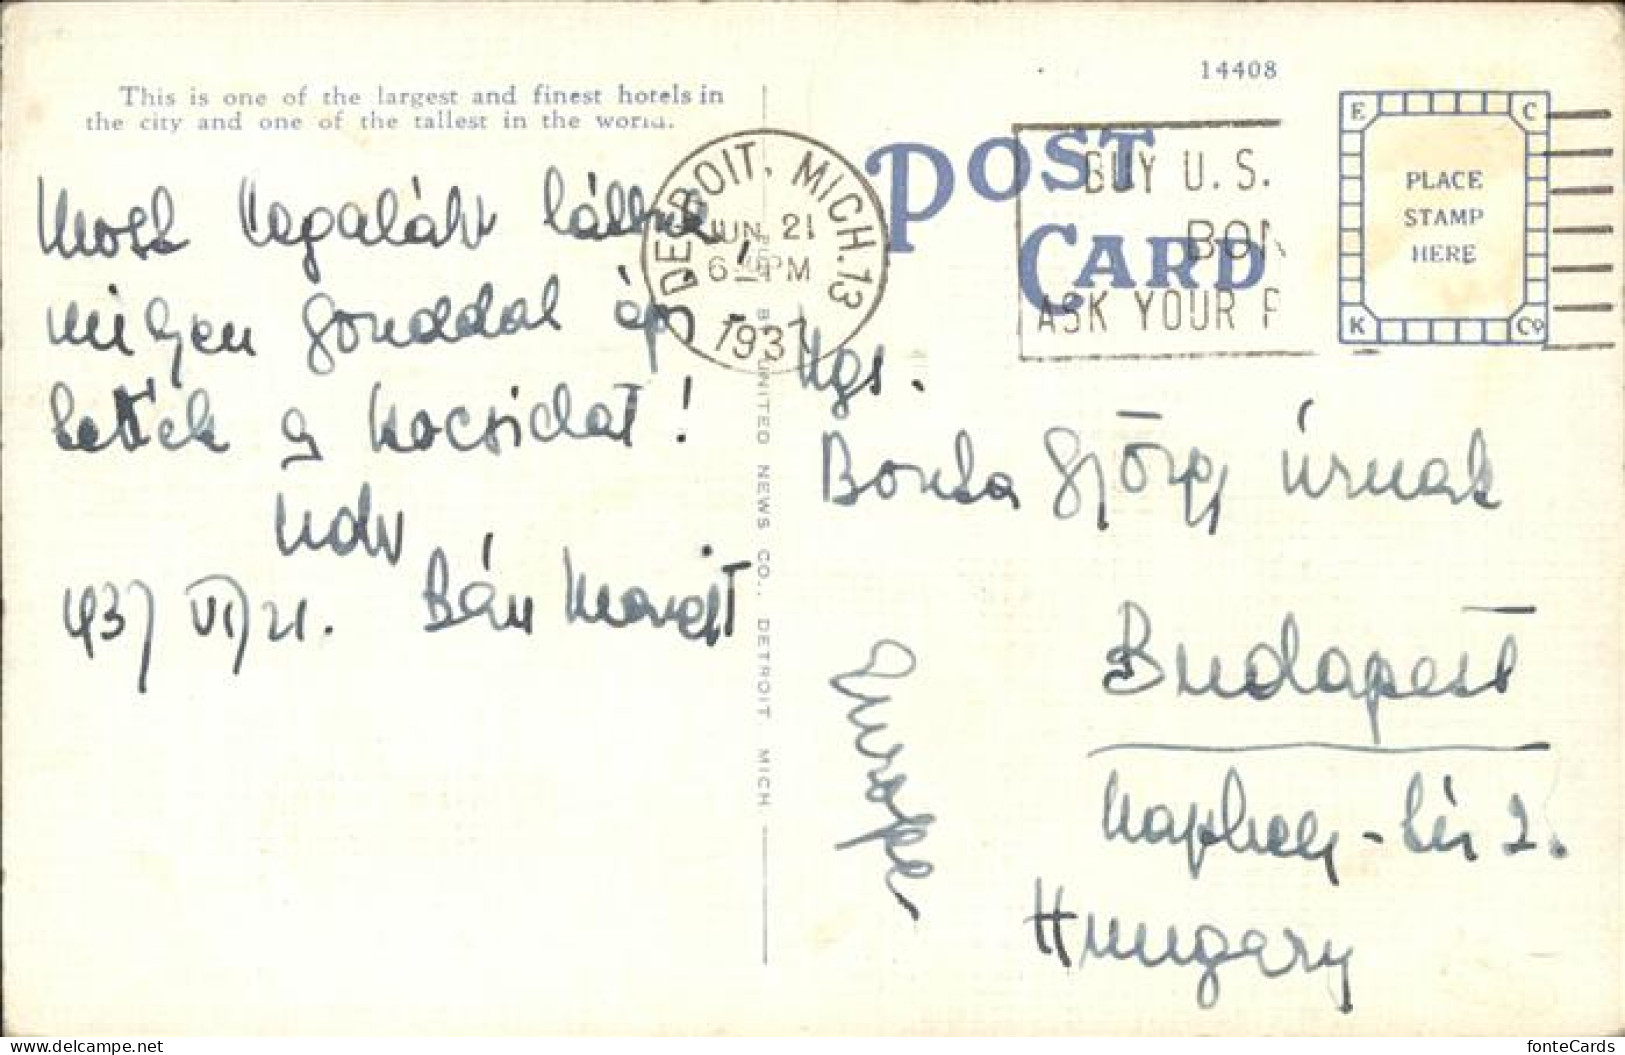 This is one of the largest and finest hotels in
the city and one of the tallest in the world.
Most legalább láttuk,
milyen gonddal áp
a kocsidat!
Üdv
937 VI/21. Bán
PUB. BY UNITED NEWS CO., DETROIT, MICH.
DETROIT, MICH. 13
JUN 21
6 PM
1937
14408
POST
CARD
BUY U.S.
BON
ASK YOUR P
E C
K Co
PLACE
STAMP
HERE
Ngs.
Bonta György úrnak
Budapest
Naphegy-tér 2.
Hungary
Europe
fonteCards